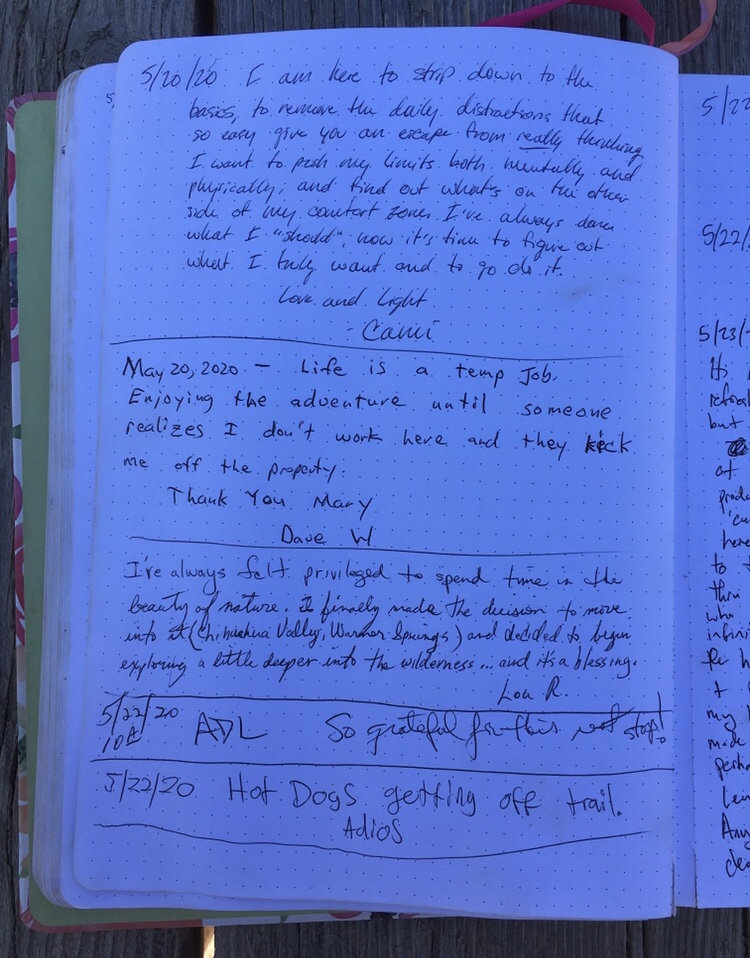 5/20/20 I am here to strip down to the
basics, to remove the daily distractions that
so easy give you an escape from really thinking
I want to push my limits both mentally and
physically, and find out what's on the other
side of my comfort zone. I've always done
what I "should", now it's time to figure out
what I truly want and to go do it.
Love and light
- Cami
May 20, 2020 - Life is a temp Job.
Enjoying the adventure until someone
realizes I don't work here and they kick
me off the property.
Thank You Mary
Dave W
I've always felt privileged to spend time in the
beauty of nature. I finally made the decision to move
into it (Chihuahua Valley, Warner Springs) and decided to begin
exploring a little deeper into the wilderness... and it's a blessing.
Lou R.
5/22/20 ADL So grateful for this rest stop!
5/22/20 Hot Dogs getting off trail.
Adios
5/22
5/22/
5/23/
Its
but
at
here
to
thru
who
infini
my
made